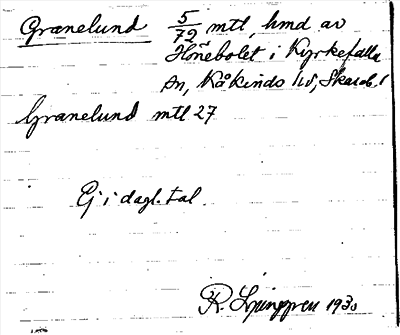 Granelund 5/72 mtl, hmd av
Hönebolet i Kyrkefalla
sn, Kåkinds hd, Skarab. l
Granelund mtl 27
Ej i dagl. tal.
R. Ljunggren 1930